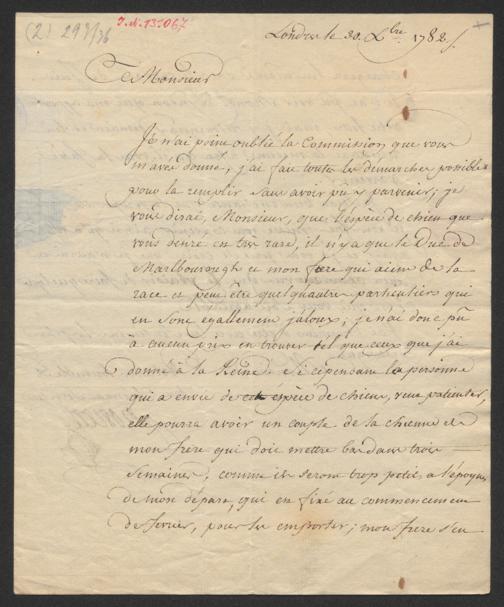 (2) 293/36
I.N. 135067
Londres le 20. Xbre. 1782
Monsieur
Je n'ai point oublié la Commission que vous
m'avez donné, j'ai fait toutes les démarches possibles
pour la remplir sans avoir pû y parvenir; je
vous dirai, Monsieur, que l'éspéce de chien que
vous desirez est très rare, il n'y a que le Duc de
Marlbourough et mon frere qui aient de la
race et peut être quelqu'autres particuliers qui
en sont egallement jaloux; je n'ai donc pû
à aucun prix en trouver tel que ceux que j'ai
donné à la Reine. Si cependant la personne
qui a envie de cet éspéce de chien, veut patienter,
elle pourra avoir un couple de la chienne de
mon frere qui doit mettre bas dans trois
semaines, comme ils seront trop petits à l'époque
de mon départ, qui est fixé au commencement
de fevrier, pour les emporter; mon frere s'en